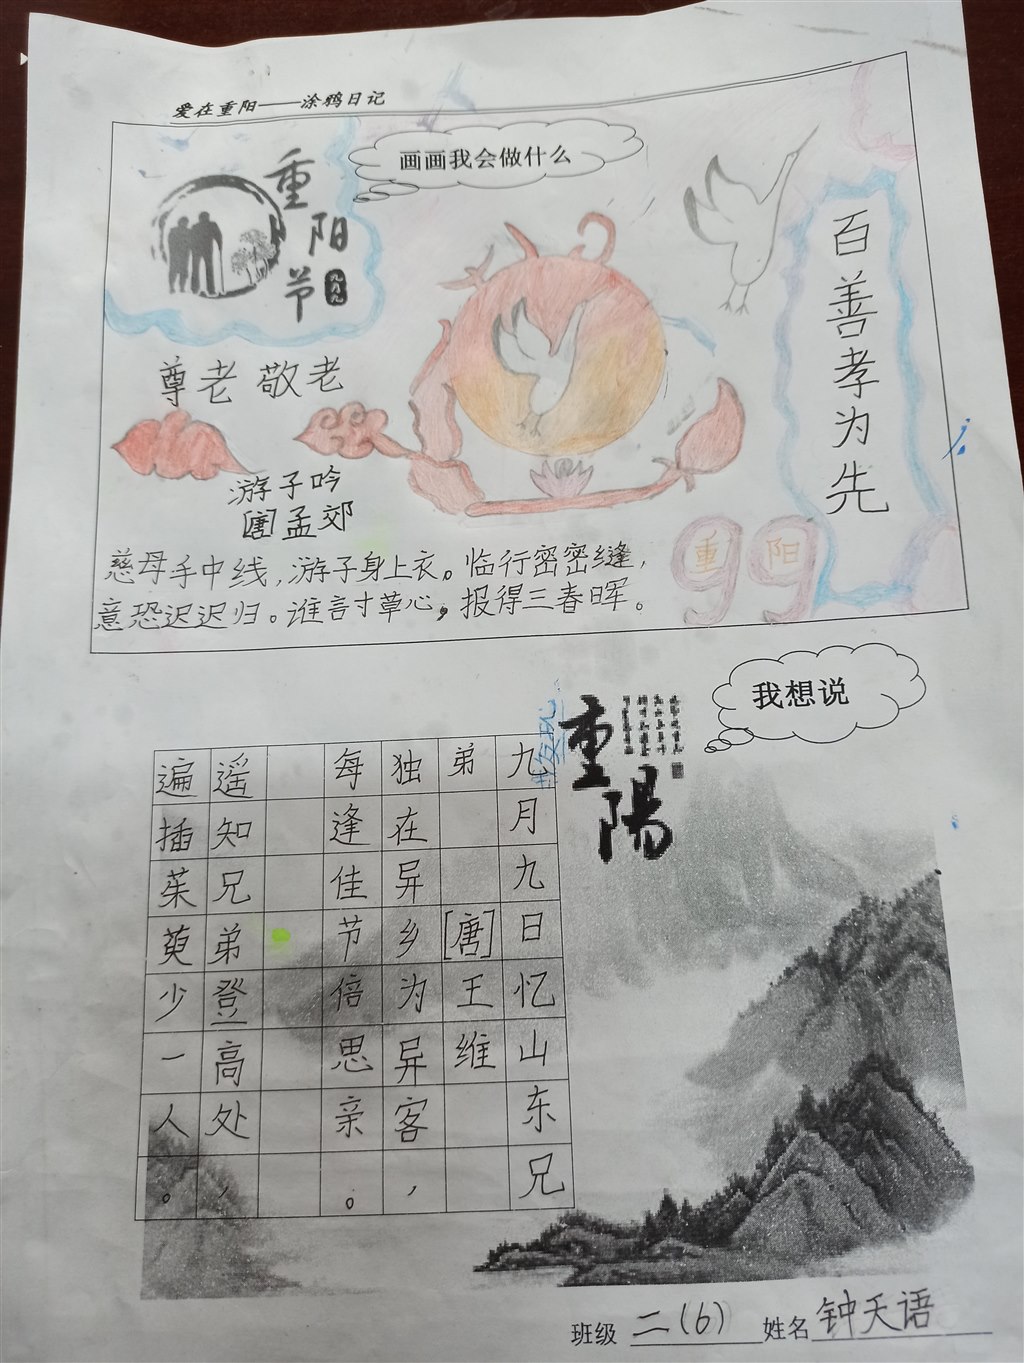 爱在重阳——涂鸦日记
画画我会做什么
重阳节
九九
百善孝为先
尊老 敬老
游子吟
[唐]孟郊
慈母手中线，游子身上衣。临行密密缝，
意恐迟迟归。谁言寸草心，报得三春晖。
99
重阳
我想说
重陽
九月九日忆山东兄
弟 [唐]王维
独在异乡为异客，
每逢佳节倍思亲。
遥知兄弟登高处，
遍插茱萸少一人。
班级 二(6) 姓名 钟天语